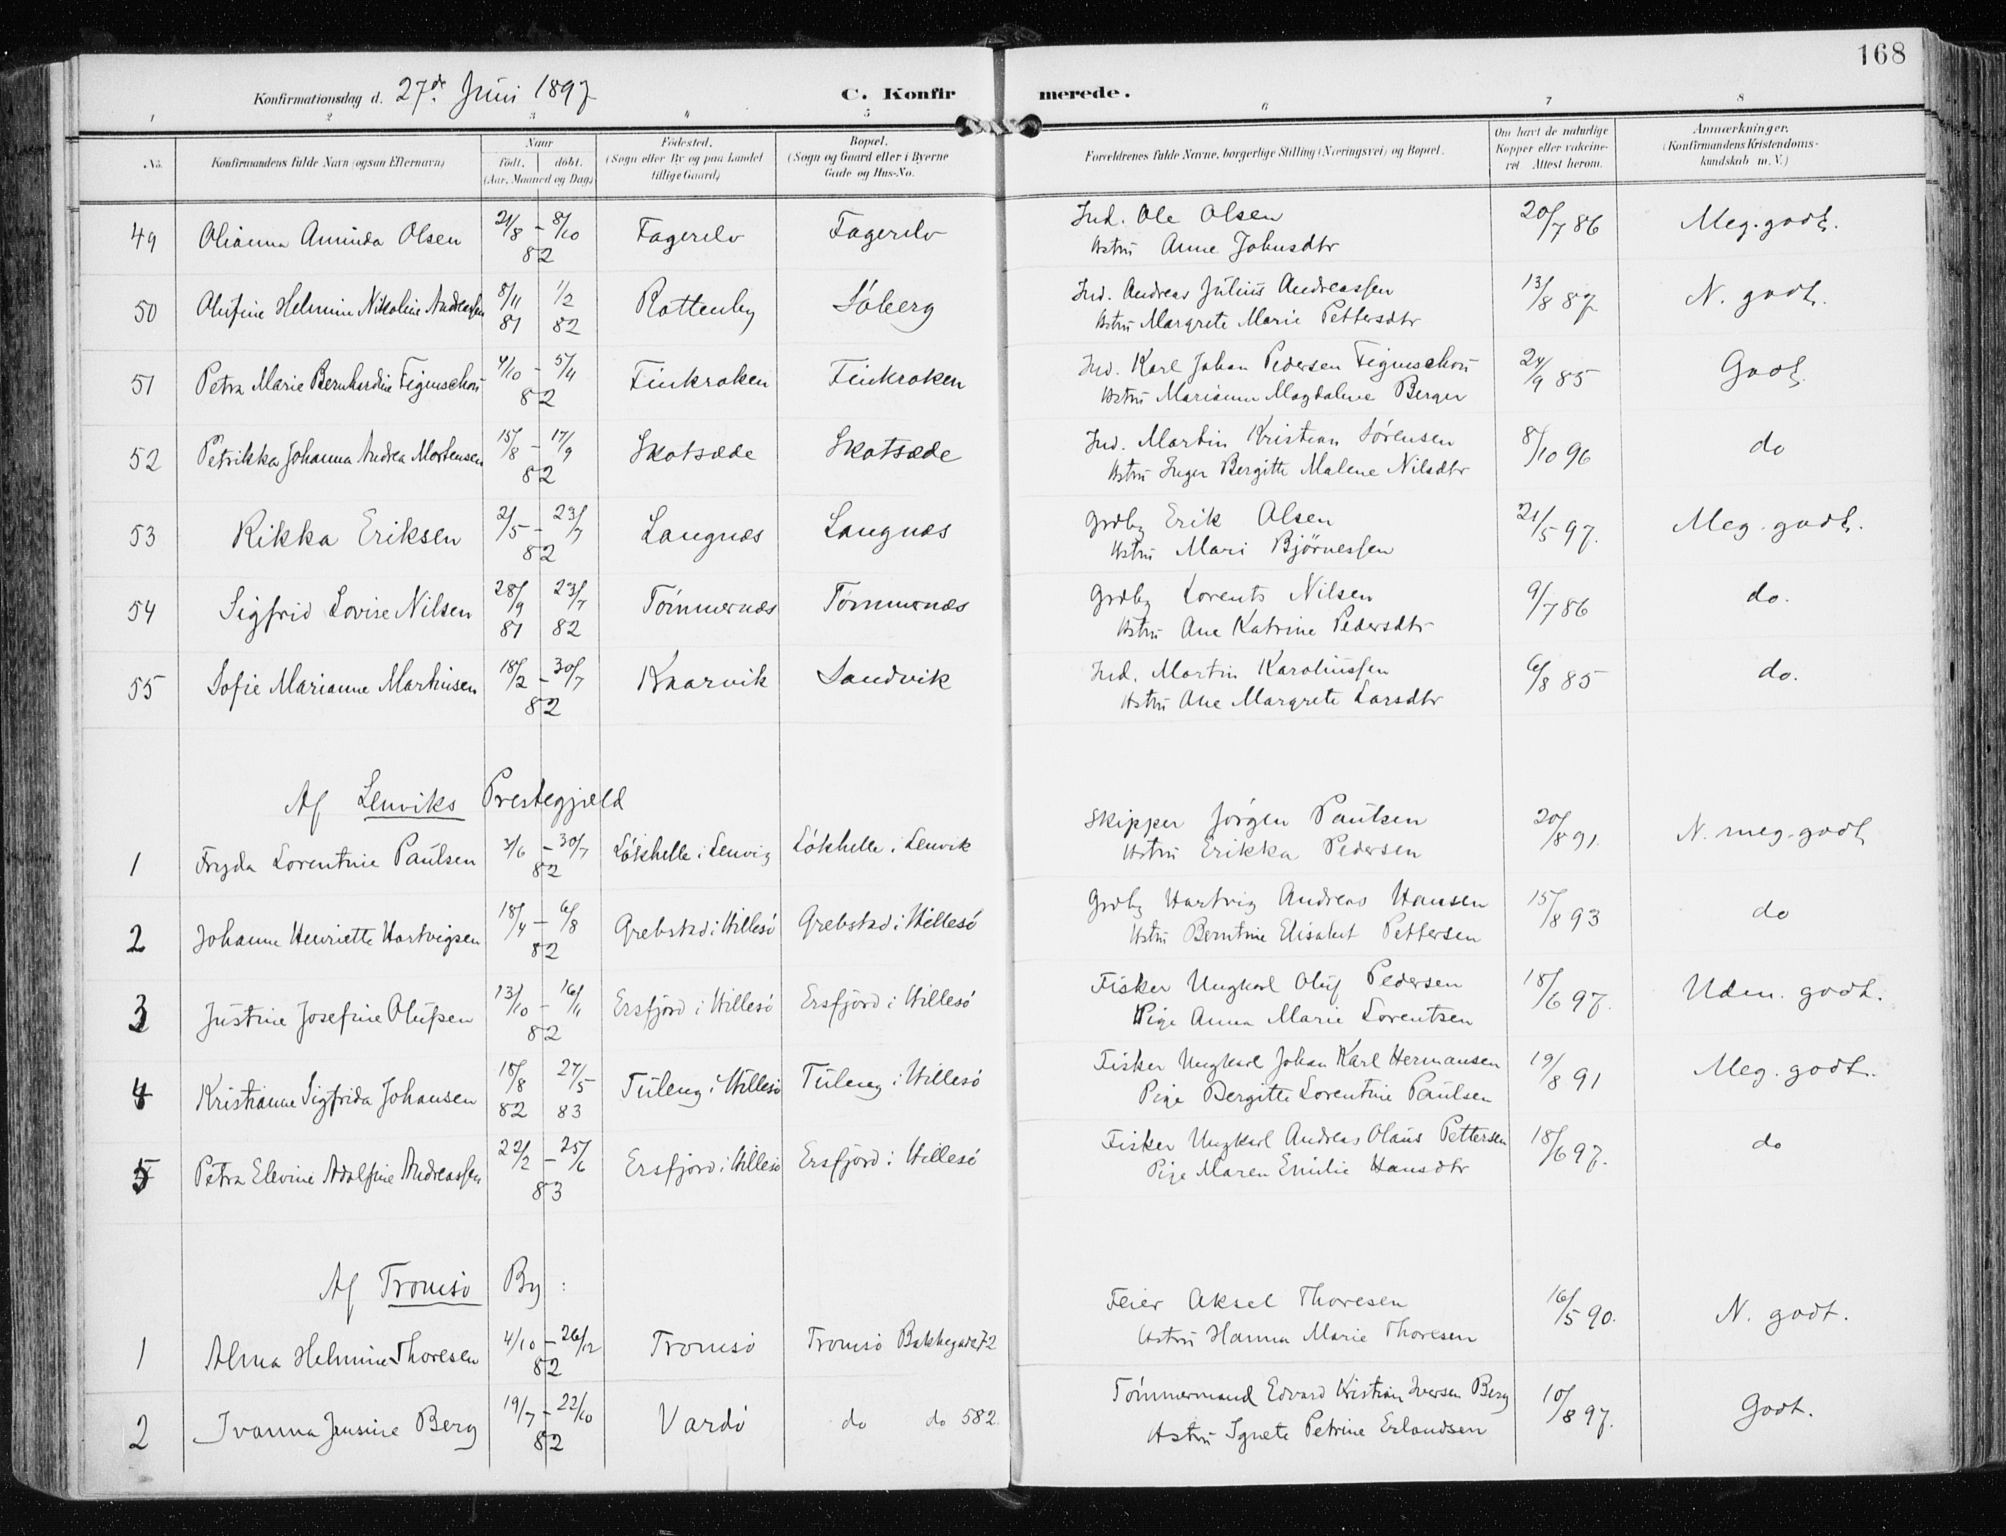 168
Konfirmationsdag d. 27de Juni 1897
C. Konfirmerede.
1 2 3 4 5 6 7 8
No.
Konfirmandens fulde Navn (ogsaa Efternavn)
Naar
født. døbt.
(Aar, Maaned og Dag)
Fødested.
(Sogn eller By og paa Landet
tillige Gaard)
Bopæl.
(Sogn og Gaard eller i Byerne
Gade og Hus-No.
Forældrenes fulde Navne, borgerlige Stilling (Næringsvei) og Bopæl.
Om havt de naturlige
Kopper eller vakcineret. Attest herom.
Anmærkninger.
(Konfirmandens Kristendomskundskab m. V.)
49 Olianna Aminda Olsen 21/8 – 8/10 82 Fagerelv Fagerelv Ind. Ole Olsen 20/7 86 Meg. godt.
Hstru Anne Johnsdtr
50 Olufine Helmine Nikoline Andreassen 8/11 81 1/2 82 Rottenby Søberg Ind. Andreas Julius Andreassen 13/8 87 N. godt.
Hstru Margrete Marie Pettersdtr
51 Petra Marie Bernhardine Figenschou 4/10 – 5/11 82 Finkroken Finkroken Ind. Karl Johan Pedersen Figenschou 24/9 85 Godt.
Hstru Marianna Magdalene Berger
52 Petrikka Johanna Andrea Mortensen 15/8 – 17/9 82 Skatsæde Skatsæde Ind. Martin Kristian Sørensen 8/10 96 do
Hstru Inger Bergitte Malene Nilsdtr
53 Rikka Eriksen 2/5 – 23/7 82 Langnæs Langnæs Grdbr Erik Olsen 21/5 97. Meg. godt.
Hstru Mari Bjørnessen
54 Sigfrid Lovise Nilsen 28/9 81 23/7 82 Tømmernæs Tømmernæs Grdbr Lorents Nilsen 9/7 86 do.
Hstru Ane Katrine Pedersdtr
55 Sofie Marianne Martinsen 18/2 – 30/7 82 Kaarvik Sandvik Ind. Martin Karoliussen 6/8 85 do.
Hstru Ane Margrete Larsdtr
Af Lenviks Prestegjæld
1 Fryda Lorentine Paulsen 3/6 – 30/7 82 Løkhelle i Lenvig Løkhelle i Lenvik Skipper Jørgen Paulsen 20/8 91. N. meg. godt
Hstru Erikka Pedersen
2 Johanne Henriette Hartvigsen 18/4 – 6/8 82 Grebstad i Hillesø Grebstad i Hillesø Grdbr Hartvig Andreas Hansen 15/8 93 do
Hstru Berntine Elisabet Pettersen
3 Justine Josefine Olufsen 13/10 – 16/11 82 Ersfjord i Hillesø Ersfjord i Hillesø Fisker Ungkarl Oluf Pedersen 18/6 97. Uden. godt.
Pige Anna Marie Lorentsen
4 Kristianne Sigfrida Johansen 18/8 82 27/5 83 Tuleng i Hillesø Tuleng i Hillesø Fisker Ungkarl Johan Karl Hermansen 19/8 91 Meg. godt.
Pige Bergitte Lorentine Paulsen
5 Petra Elevine Adolfine Andreassen 22/2 – 25/6 83 Ersfjord i Hillesø Ersfjord i Hillesø Fisker Ungkarl Andreas Olaus Pettersen 18/6 97. do
Pige Maren Emilie Hansdtr
Af Tromsø By :
1 Alma Helmine Thoresen 4/10 – 26/12 82 Tromsø Tromsø Bakkegade 72 Feier Aksel Thoresen 16/5 90. N. godt.
Hstru Hanna Marie Thoresen
2 Ivanna Jensine Berg 19/7 – 22/10 82 Vardø do do 582 Tømmermand Edvard Kristian Iversen Berg 10/8 97. Godt.
Hstru Ignete Petrine Erlandsen